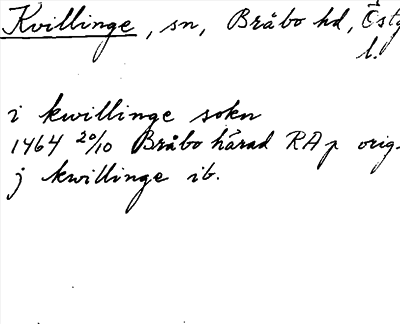 Kvillinge, sn, Bråbo hd, Östg
l.
i kwillinge sokn
1464 20/10 Bråbo härad RA p orig.
j kwillinge ib.